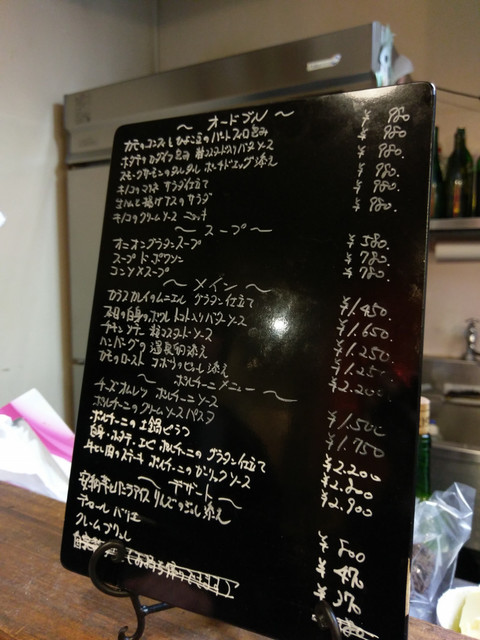 ～ オードブル ～
カモのコンフィと ひよこ豆のパートフィロ包み ¥ 980
ホタテの カダイフ包み 粒マスタード入りバターソース ¥ 980.
スモークサーモンのタルタル ポーチドエッグ添え ¥ 980.
キノコのマリネ サラダ仕立て ¥ 980.
生ハムと揚げナスのサラダ ¥ 980.
キノコのクリームソース ニョッキ ¥ 980.
～ スープ ～
オニオングラタンスープ ¥ 580.
スープ ド ポワソン ¥ 780.
コンソメスープ ¥ 780.
～ メイン ～
カラスカレイのムニエル グラタン仕立て ¥1,450
本日の白身のポワレ トマト入りバターソース ¥1,650.
チキンソテー 粒マスタードソース ¥1,250
ハンバーグの 温泉卵添え ¥1,250
カモのロースト ¥2,200
～ ポルチーニメニュー ～
チーズオムレツ ポルチーニソース ¥1,500
ポルチーニのクリームソースパスタ ¥1,750
ポルチーニの土鍋ぞうすい ¥2,200
白身・ホタテ・エビ ポルチーニの グラタン仕立て ¥2,800
牛ヒレ肉のステーキ ポルチーニのガーリックソース ¥2,900
～ デザート ～
安納芋とバニラアイス りんごのジュレ添え ¥ 500
ガトーバリエ ¥ 470
クレームブリュレ ¥ 370